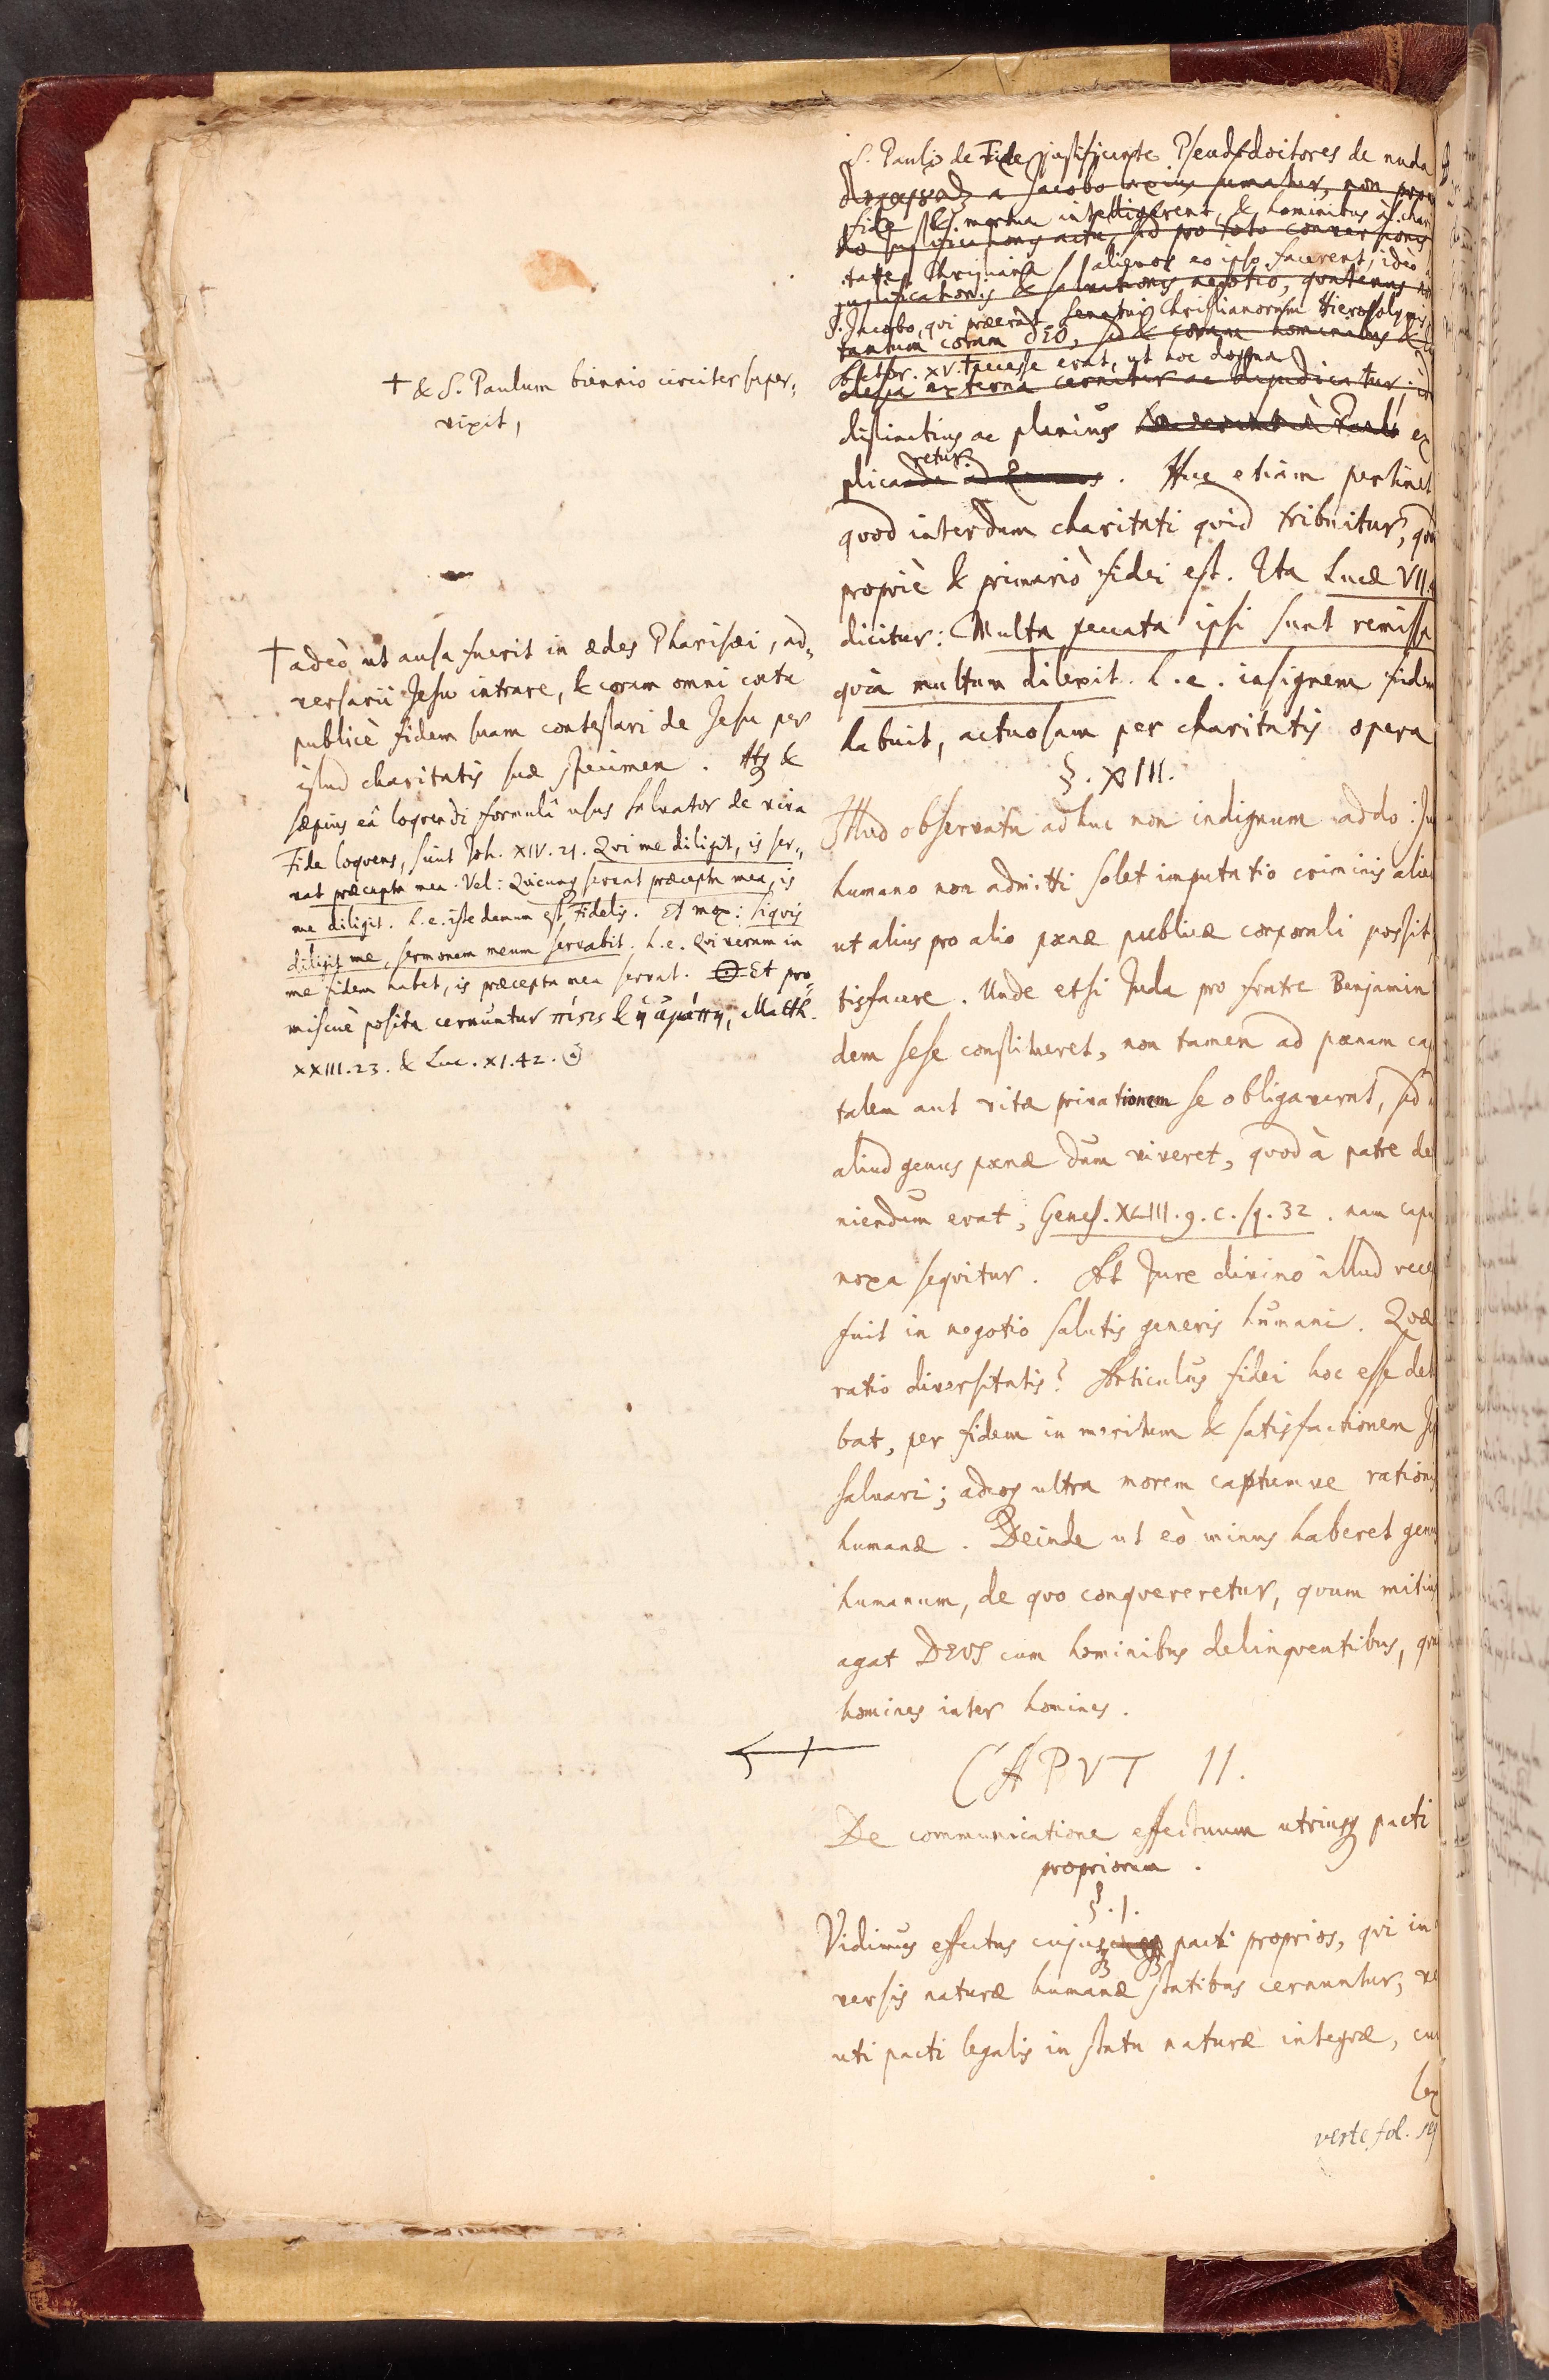 S. Pauli de Fide justificante Pseudodoctores de nuda
a Jacobo latius sumatur, non pro
fide & mortua intelligerent, & hominibus à chari
justificationis actu, sed pro toto conversionis
tate Christiana alienos eo ipso facerent, ideo
justificationis & salvationis negotio, quatenus
S. Jacobo, qui præerat Senatui Christianorum Hierosolymis
tantum coram DEO, sed & coram hominibus &
Actor. XV. † necesse erat, ut hoc dogma
clesia externa cernitur ac dijudicatur;
† & S. Paulum biennio circiter super-
vixit,
distinctius ac planius ex
plicaretur. Huc etiam pertinet
quod interdum charitati quid tribuitur,
propriè & primariò fidei est. Ita Lucæ VII.
dicitur: Multa peccata ipsi sunt remissa
quia multum dilexit. h.e. insignem fidem
habuit, actuosam per charitatis opera
† adeò ut ausa fuerit in ædes Pharisæi, ad-
versarii Jesu intrare, & coram omni cœtu
publicè fidem suam contestari de Jesu per
istud charitatis suæ specimen. Atq; &
sæpius eâ loquendi formulâ usus Salvator de viva
Fide loquens, sicut Joh. XIV. 21. Qvi me diligit, is ser-
vat præcepta mea. Vel: Qvicunq; servat præcepta mea, is
me diligit. h.e. iste demum est Fidelis. Et mox: siqvis
diligit me, sermonem meum servabit. h.e. Qvi verum in
me fidem habet, is præcepta mea servat. Et pro-
miscuè posita cernuntur πίσις & ἡ ἀγάπη, Matth.
XXIII. 23. & Luc. XI. 42.
§. XIII.
Illud observatu adhuc non indignum addo: Ju
humano non admitti solet imputatio criminis alie
ut alius pro alio pœnæ publicæ corporali possit
tisfacere. Unde etsi Juda pro fratre Benjamin
dem sese constitueret, non tamen ad pœnam ca
talem aut vitæ privationem se obligaverat, sed
aliud genus pœnæ dum viveret, quod à patre de
niendum erat, Genes. XLIII. 9. c. sq. 32. nam capu
noxa sequitur. At Jure divino illud rece
fuit in negotio salutis generis humani. Qvæ
ratio diversitatis? Articulus fidei hoc esse de
bat, per fidem in meritum & satisfactionem
salvari; adeoq; ultra morem captumve rationis
humanæ. Deinde ut eò minus haberet gen
humanum, de quo conquereretur, quum mitius
agat DEUS cum hominibus delinquentibus,
homines inter homines.
CAPVT II.
De communicatione effectuum utriusq; pacti
propriorum.
§. I.
Vidimus effectus cujusq; pacti proprios, qvi in
versis naturæ humanæ statibus cernuntur, ve
uti pacti legalis in statu naturæ integræ, cu
lex
verte fol.